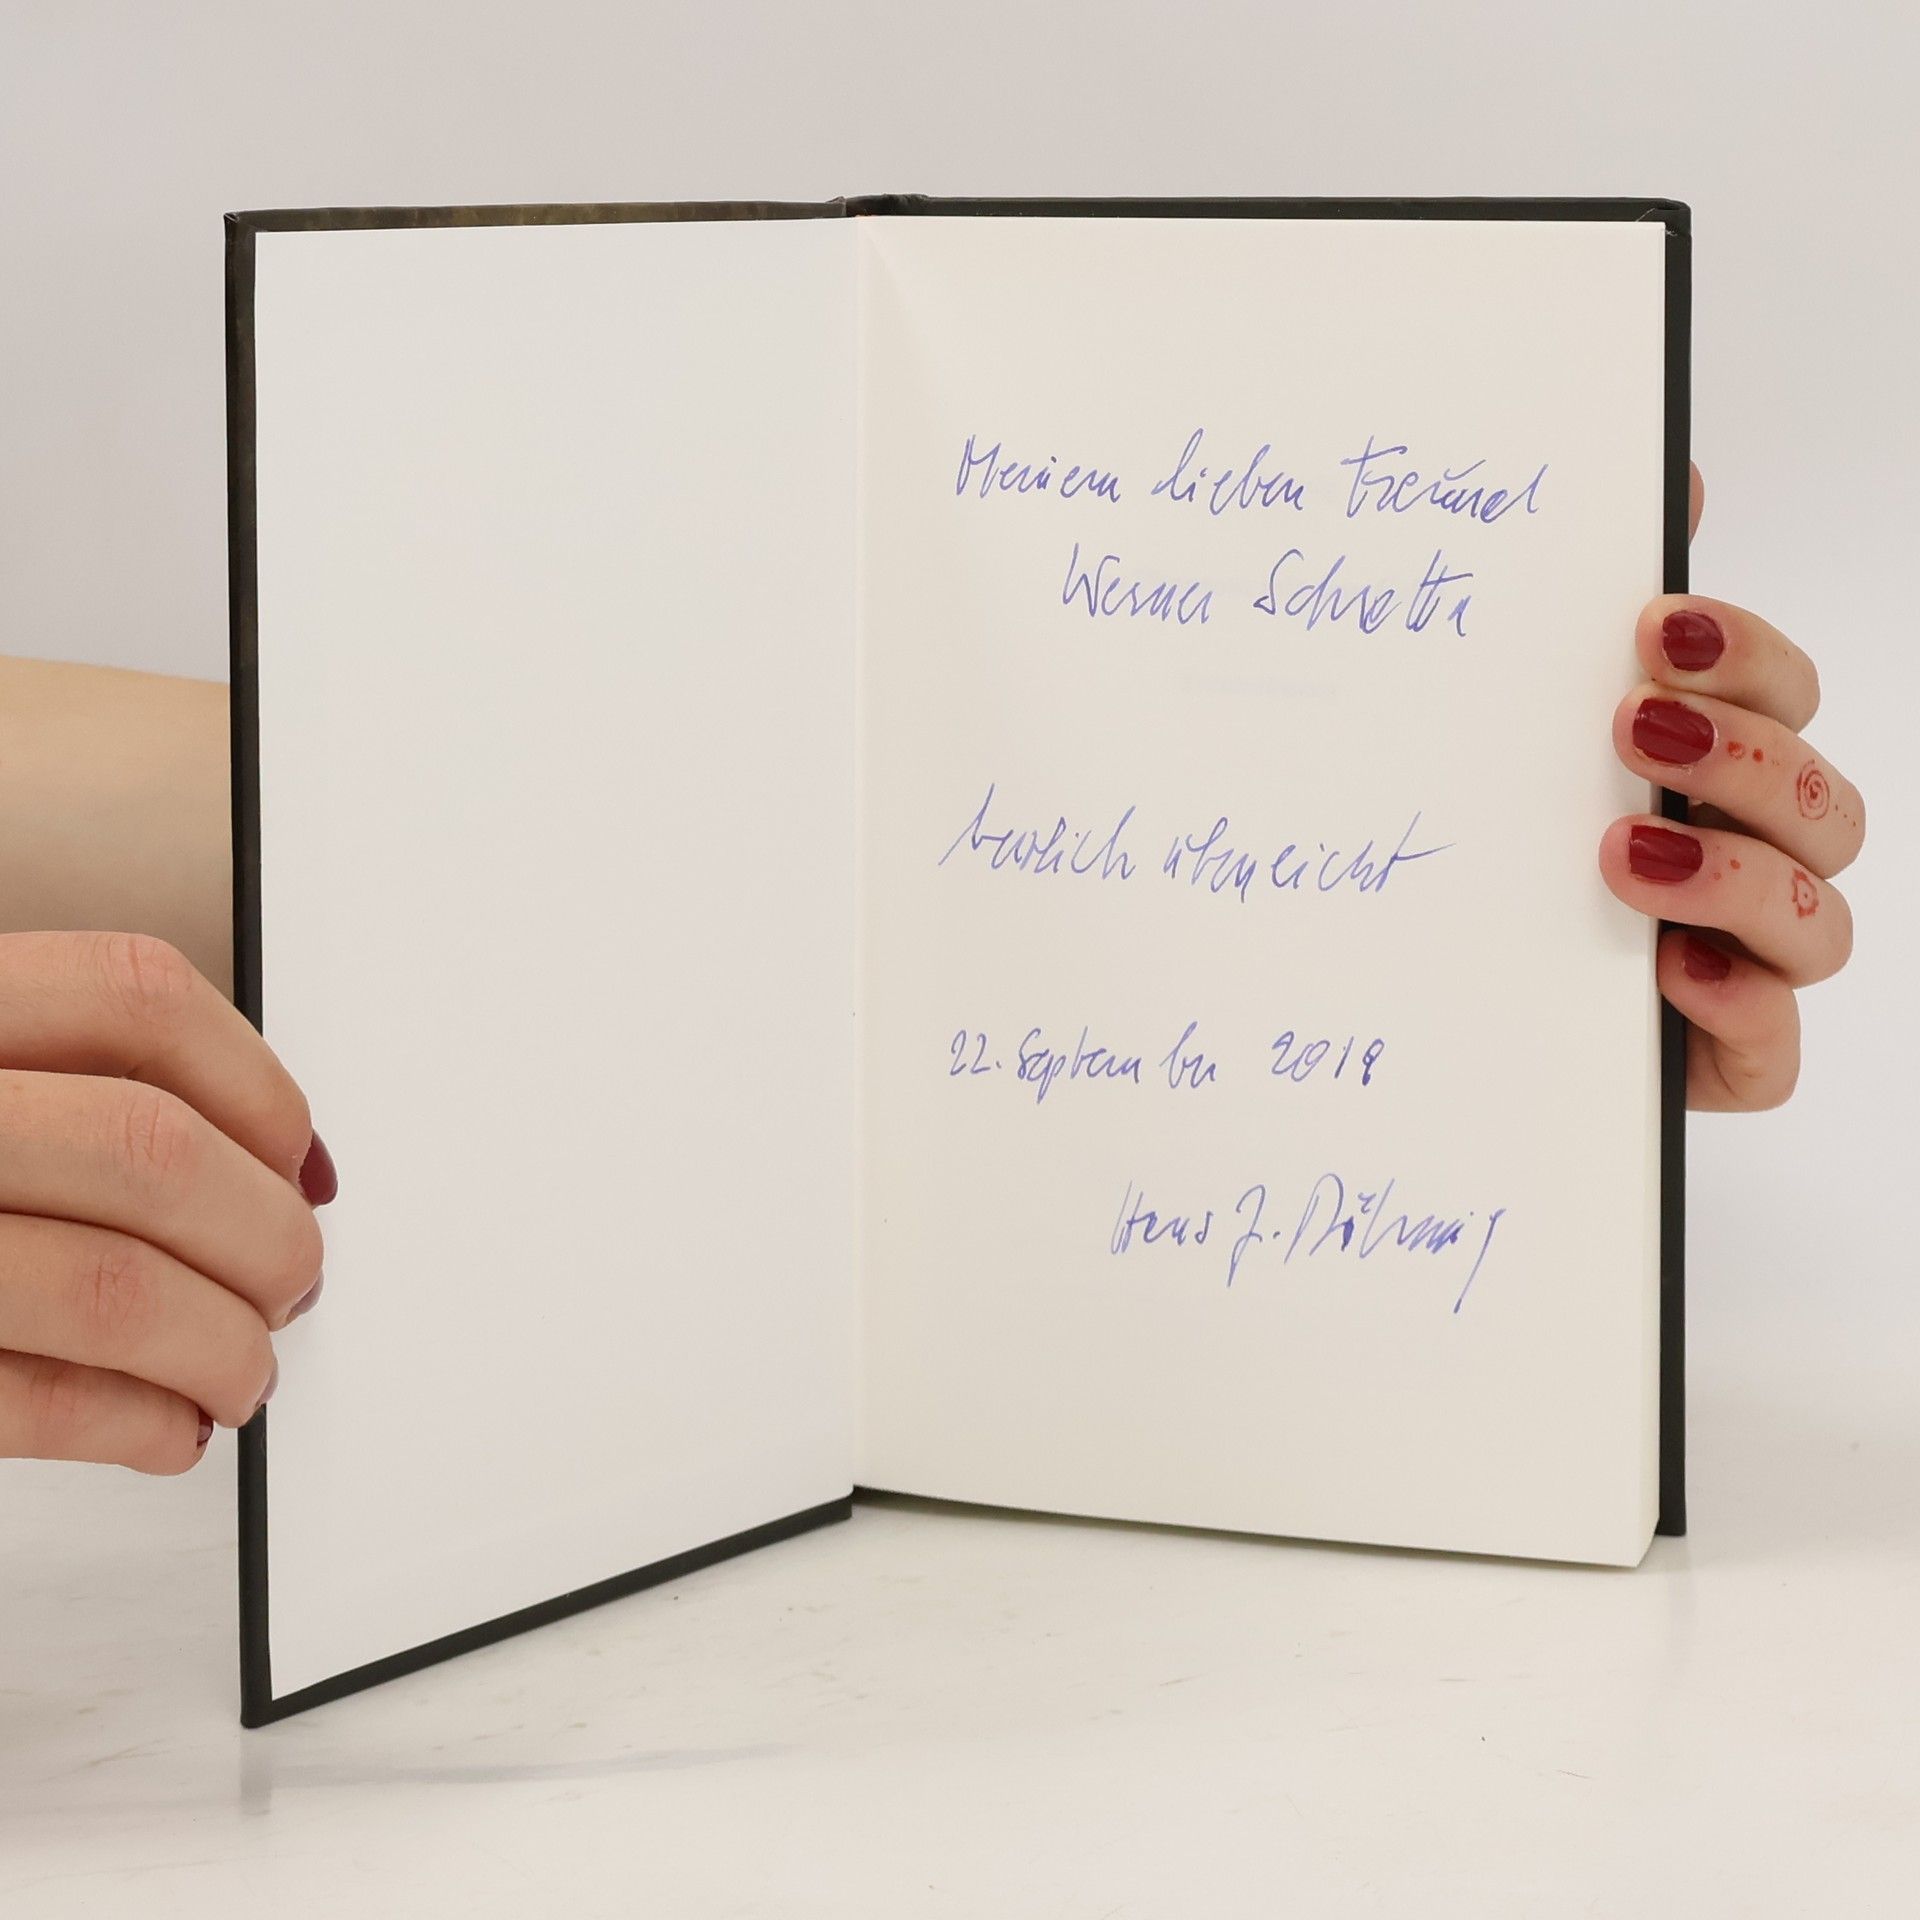 Meinem lieben Freund
Werner Schretta
herzlich überreicht
22. September 2019
Hans J.